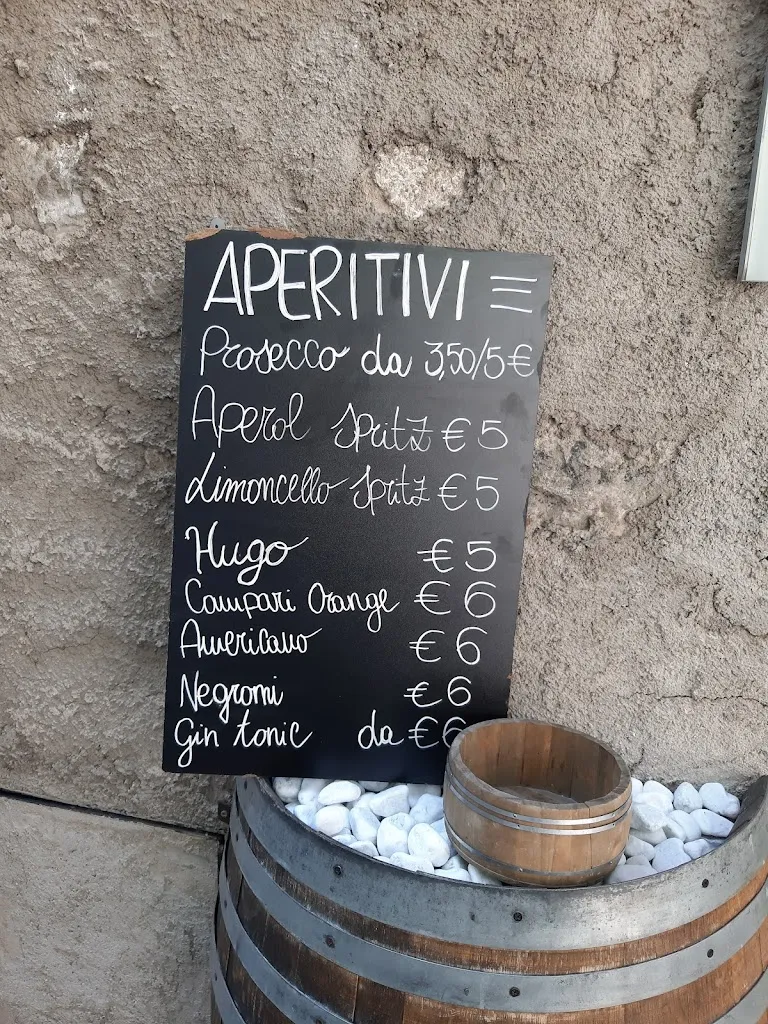 APERITIVI
Prosecco da 3,50/5€
Aperol Spritz € 5
Limoncello Spritz € 5
Hugo € 5
Campari Orange € 6
Americano € 6
Negroni € 6
Gin tonic da € 6